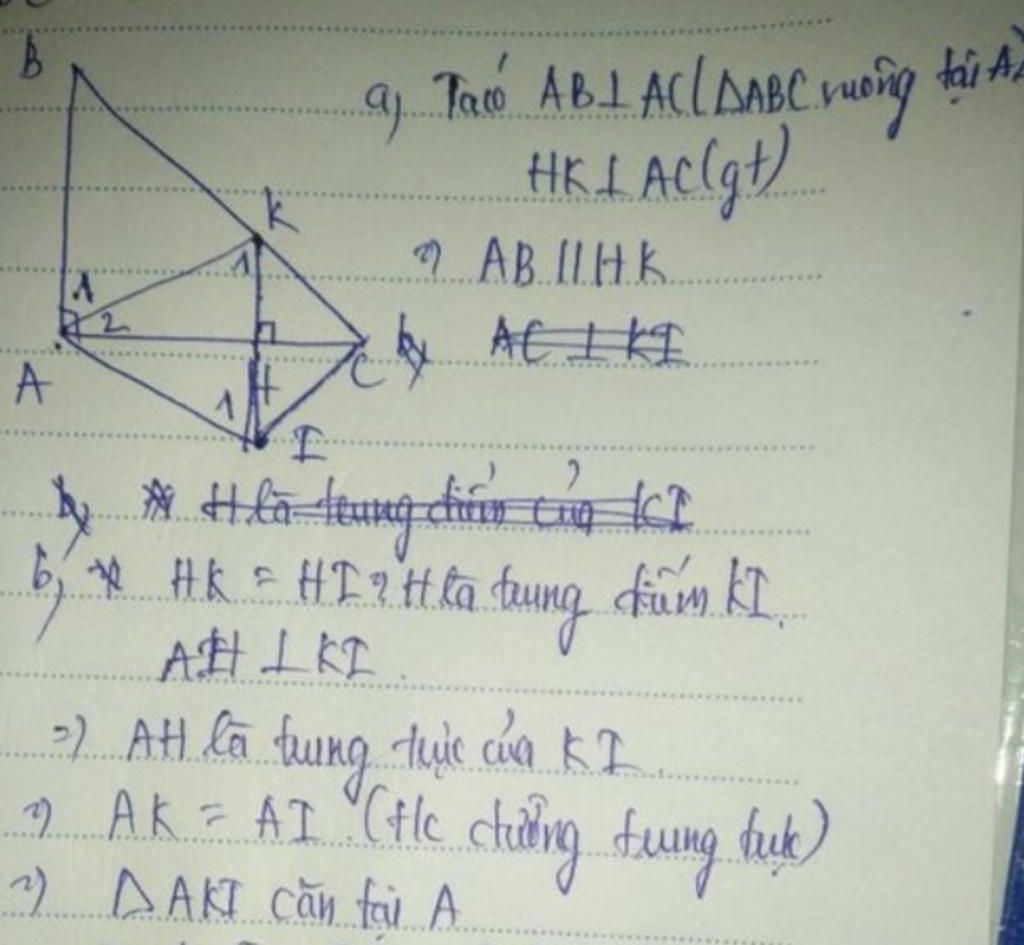 B
a) Ta có AB⊥AC(ΔABC vuông tại A)
HK⊥AC(gt)
K
1
=) AB//HK
1
2
b) AC⊥KI
A
H
C
1
I
b) * H là trung điểm của KI
b, * HK = HI => H là trung điểm KI.
AH ⊥ KI.
=) AH là trung trực của KI.
=) AK = AI (t/c đường trung trực)
=) ΔAKI cân tại A